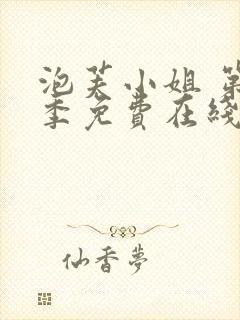 泡芙小姐 第
季免費在綫
仙香夢